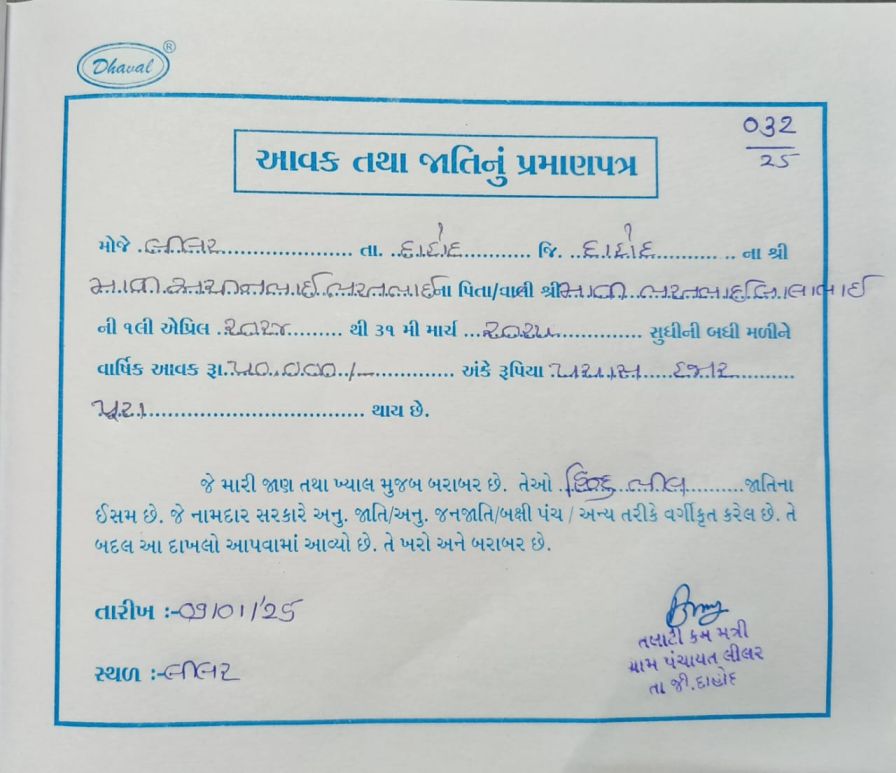 Dhaval ®
032
25
આવક તથા જાતિનું પ્રમાણપત્ર
મોજે .લીલર........................ તા. ..દાહોદ........... જિ. ..દાહોદ........... .. ના શ્રી
ભરતભાઈના પિતા/વાલી શ્રી ભરતભાઈ
ની ૧લી એપ્રિલ .૨૦૨૪......... થી ૩૧ મી માર્ચ ...૨૦૨૫.............. સુધીની બધી મળીને
વાર્ષિક આવક રૂા.૫૦,૦૦૦/-.............. અંકે રૂપિયા .પચાસ.....હજાર............
પૂરા.................................... થાય છે.
જે મારી જાણ તથા ખ્યાલ મુજબ બરાબર છે. તેઓ .હિન્દુ ભીલ.........જાતિના
ઈસમ છે. જે નામદાર સરકારે અનુ. જાતિ/અનુ. જનજાતિ/બક્ષી પંચ / અન્ય તરીકે વર્ગીકૃત કરેલ છે. તે
બદલ આ દાખલો આપવામાં આવ્યો છે. તે ખરો અને બરાબર છે.
તારીખ :-09/01/25
સ્થળ :-લીલર
તલાટી કમ મંત્રી
ગ્રામ પંચાયત લીલર
તા જી.દાહોદ